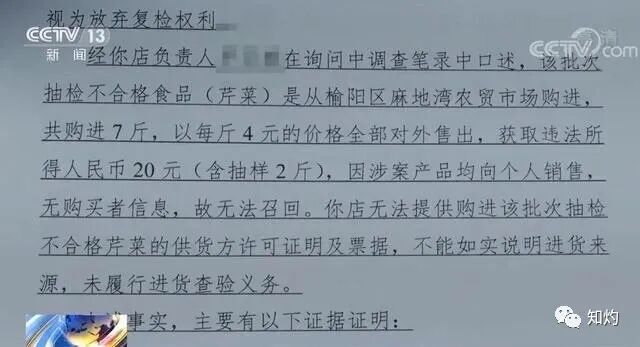 CCTV 13
新闻
CCTV.com
视为放弃复检权利
经你店负责人 在询问中调查笔录中口述，该批次
抽检不合格食品（芹菜）是从榆阳区麻地湾农贸市场购进，
共购进 7 斤，以每斤 4 元的价格全部对外售出，获取违法所
得人民币 20 元（含抽样 2 斤），因涉案产品均向个人销售，
无购买者信息，故无法召回。你店无法提供购进该批次抽检
不合格芹菜的供货方许可证明及票据，不能如实说明进货来
源，未履行进货查验义务。
事实，主要有以下证据证明：
知灼